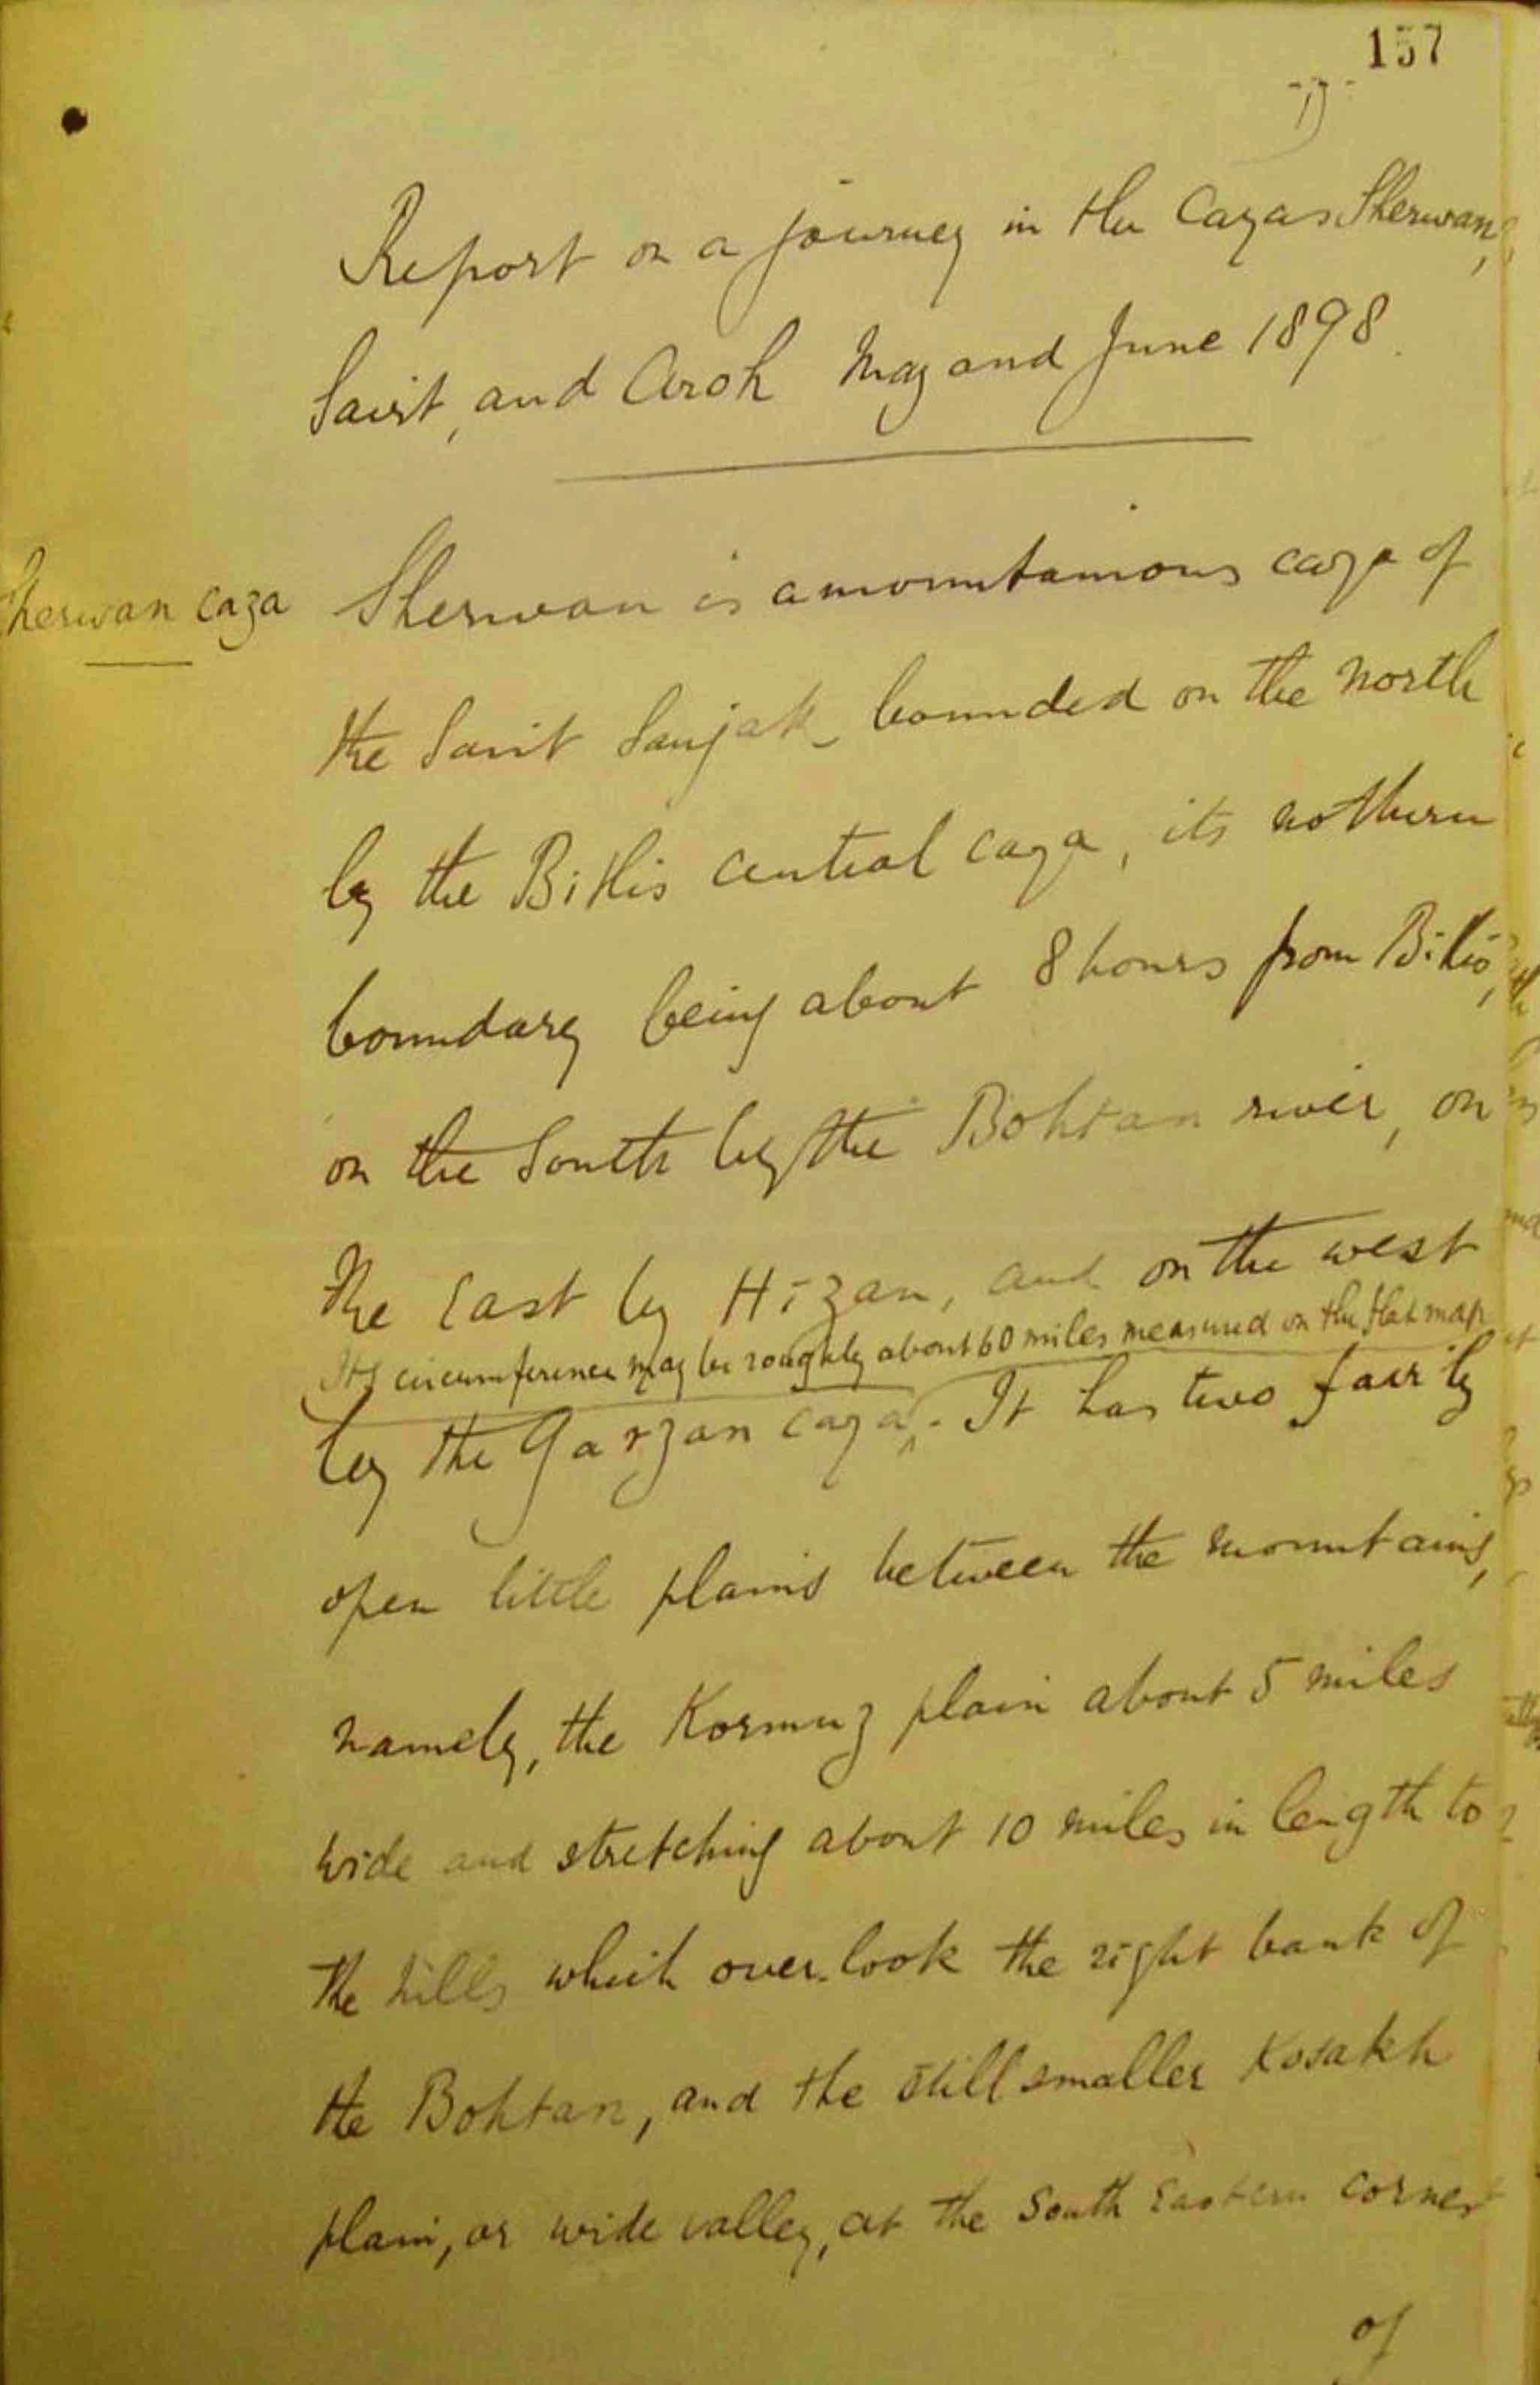 157
Report on a journey in the Cazas Sherwan,
Sairt, and Aroh May and June 1898.
Sherwan caza
Sherwan is a mountainous caza of
the Sairt Sanjak bounded on the north
by the Bitlis central caza, its nothern
boundary being about 8 hours from Bitlis,
on the South by the Bohtan river, on
the East by Hizan, and on the west
Its circumference may be roughly about 60 miles measured on the flat map
by the Garzan caza. It has two fairly
open little plains between the mountains,
namely, the Kormuz plain about 5 miles
wide and stretching about 10 miles in length to
the hills which over-look the right bank of
the Bohtan, and the still smaller Kosakh
plain, or wide valley, at the South Eastern corner
of